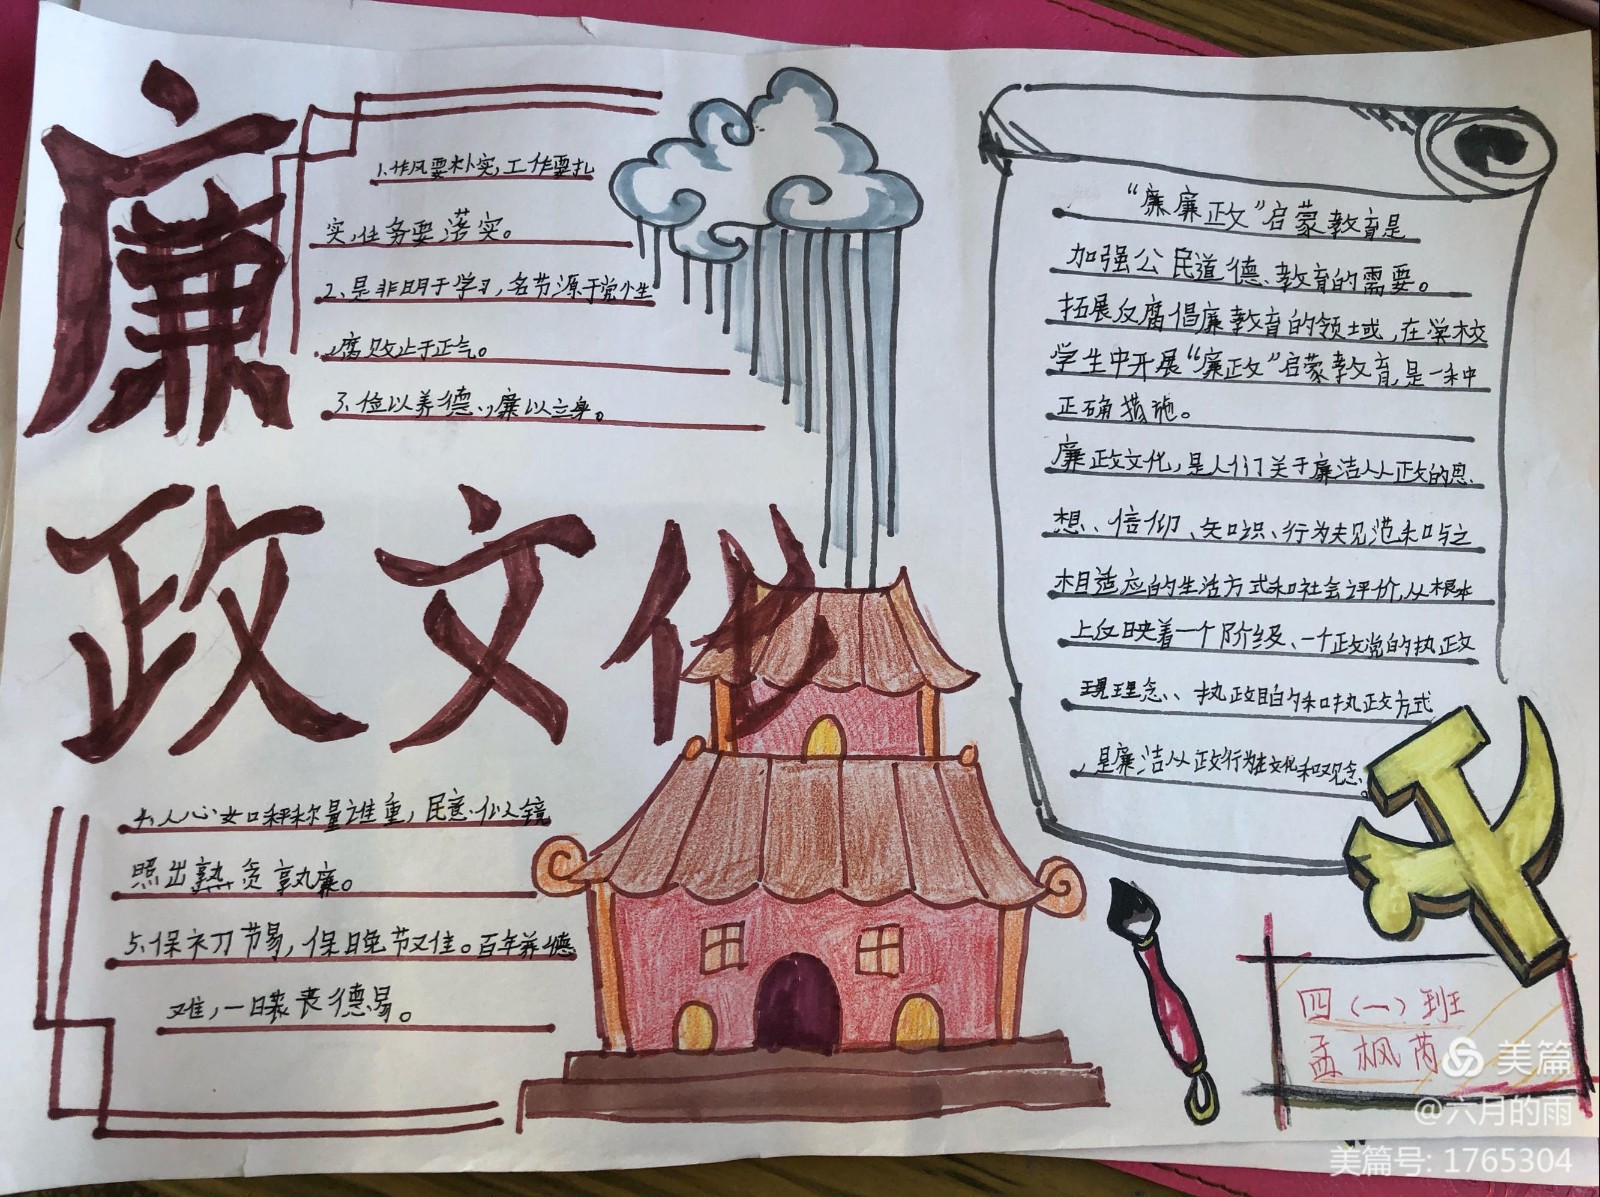 廉
政文化
1.作风要朴实,工作要扎
实,任务要落实。
2、是非明于学习,名节源于党性
,腐败止于正气。
3、位以养德,廉以立身。
4、人心如秤称量谁重,民意似镜
照出孰贪孰廉。
5、保初节易,保晚节难。百年养德
难,一日丧德易。
“廉廉政”启蒙教育是
加强公民道德、教育的需要。
拓展反腐倡廉教育的领域,在学校
学生中开展“廉政”启蒙教育,是一种
正确措施。
廉政文化,是人们关于廉洁从政的思
想、信仰、知识、行为规范和与之
相适应的生活方式和社会评价,从根本
上反映着一个阶级、一个政党的执政
理念、执政目的和执政方式
,是廉洁从政行为在文化和观念
。
四(一)班
孟枫芮
美篇
@六月的雨
美篇号: 1765304